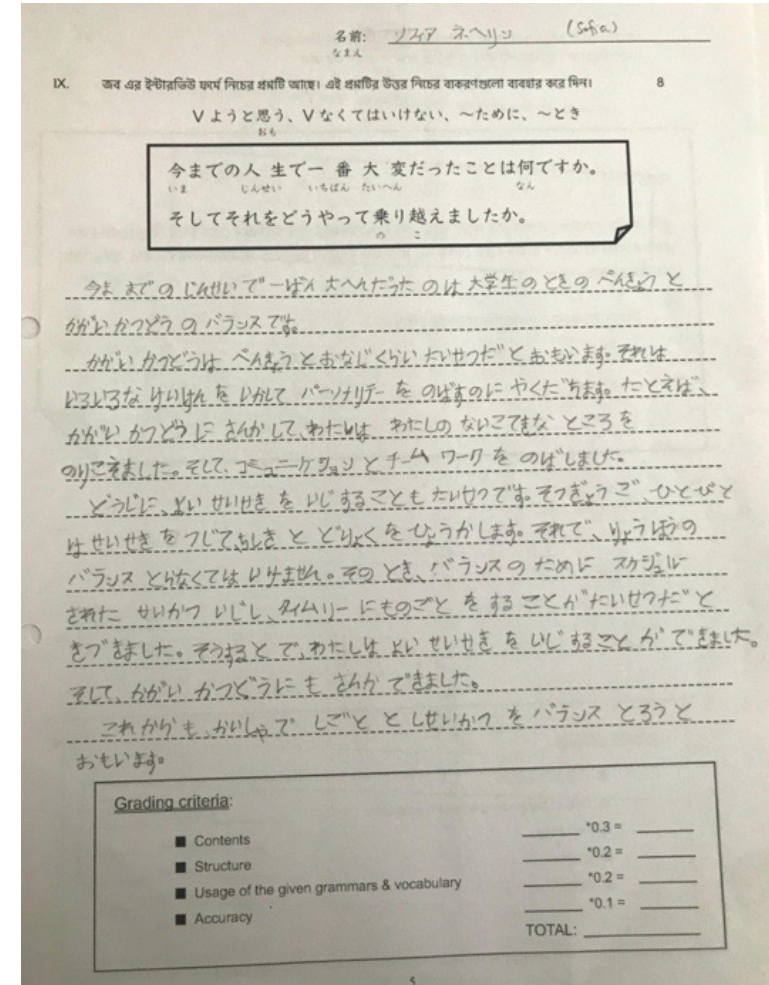 名前: ソフィア ネヘリン (Sofia)
なまえ
IX. জব এর ইন্টারভিউ ফর্মে নিচের প্রশ্নটি আছে। এই প্রশ্নটির উত্তর নিচের ব্যকরণগুলো ব্যবহার করে দিন। 8
Vようと思う、Vなくてはいけない、～ために、～とき
おも
今までの人生で一番大変だったことは何ですか。
いま じんせい いちばん たいへん なん
そしてそれをどうやって乗り越えましたか。
の こ
今までのじんせいで一ばん大へんだったのは大学生のときのべんきょうと
かがいかつどうのバランスです。
かがいかつどうは べんきょうとおなじくらい たいせつだ とおもいます。それは
いろいろな けいけん を いかして パーソナリテーを のばすのに やくだちます。たとえば、
かがいかつどうに さんかして、わたしは わたしの ないこてきな ところを
のりこえました。そして、コミュニケションとチームワークを のばしました。
どうじに、よい せいせき を いじすることも たいせつです。そつぎょうご、ひとびと
はせいせきをつじてちしき と どりょくを ひょうかします。それで、りょうほうの
バランス とらなくては いけません。そのとき、バランスのために スケジュル
された せいかつ いじし、タイムリーにものごと を することが たいせつだ と
きづきました。そうすると で、わたしは よい せいせき を いじ することが できました。
そして、かがい かつどうにも さんか できました。
これからも、かいしゃで しごと と しせいかつ を バランス とろうと
おもいます。
Grading criteria:
■ Contents ______ *0.3 = ______
■ Structure ______ *0.2 = ______
■ Usage of the given grammars & vocabulary ______ *0.2 = ______
■ Accuracy ______ *0.1 = ______
TOTAL: ______
5